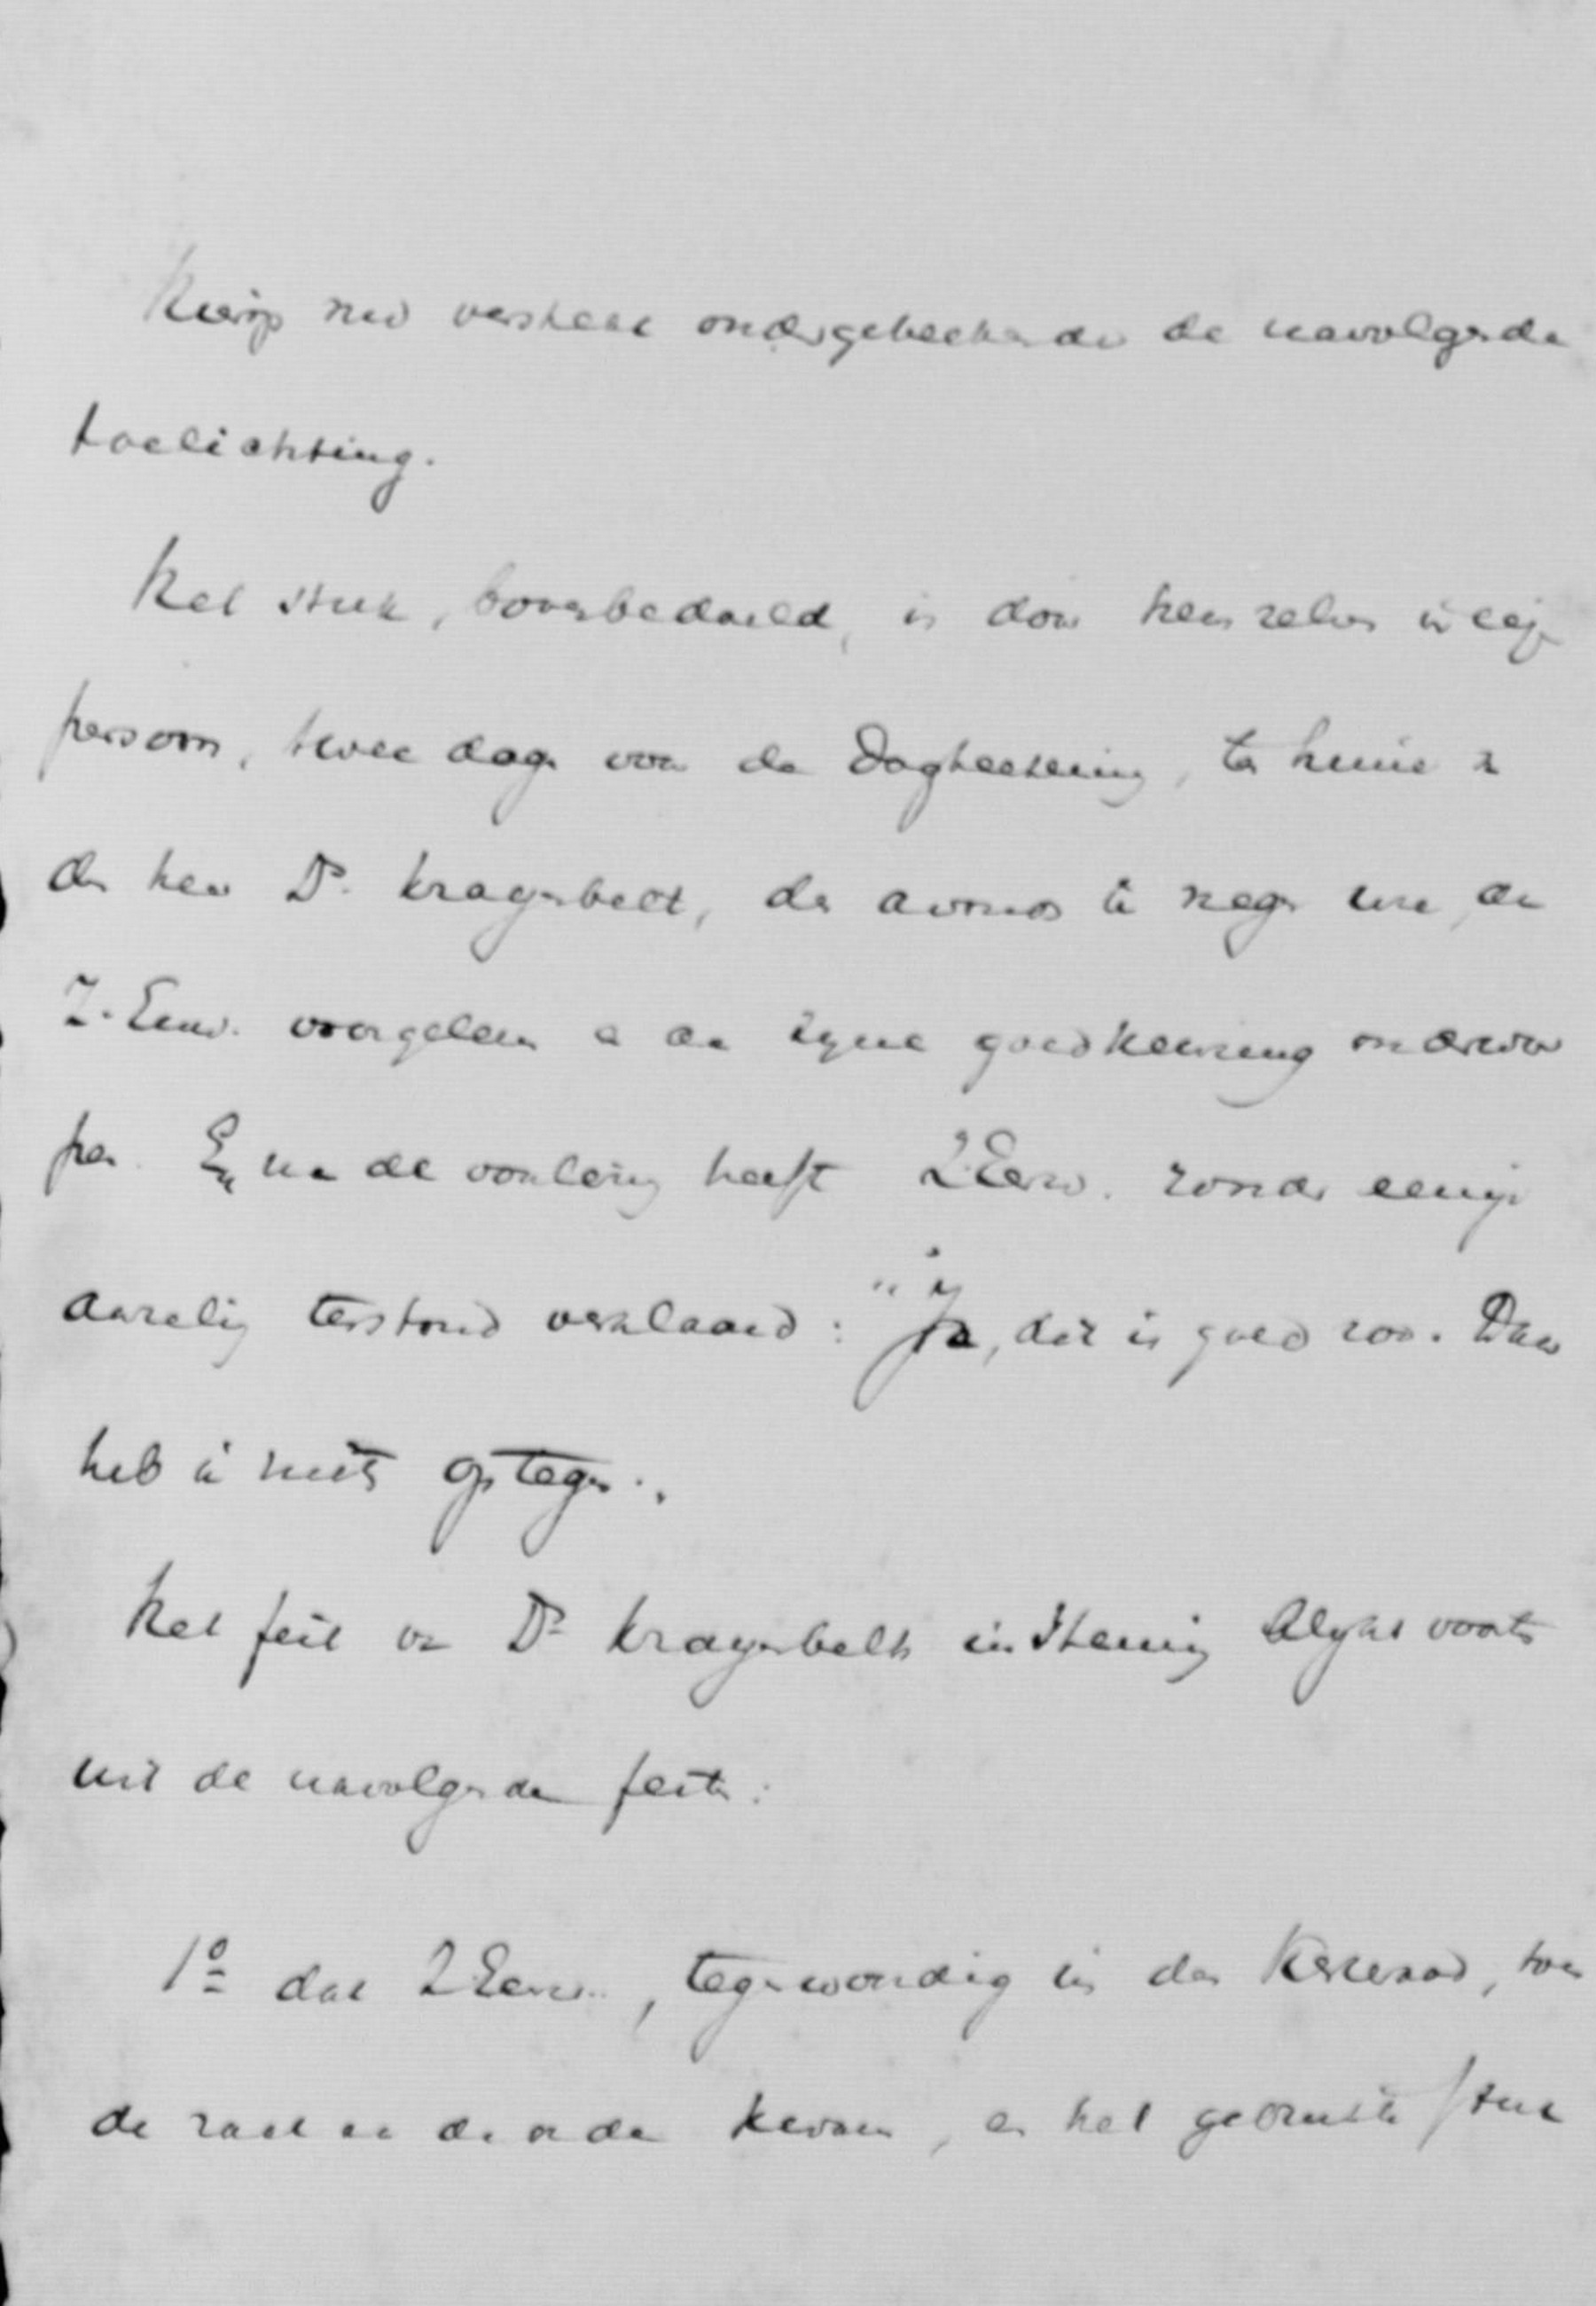 Hierop nu verstrekt ondergeteekende de navolgende
toelichting.
Het stuk, bovenbedoeld, is door hem zelven in eigen
persoon, twee dagen voor de Dagteekening, ten huize van
den heer Ds. Krayenbelt, des avonds te negen ure, aan
Z.Eerw. voorgelezen en aan zijne goedkeuring onderwor
pen. En na de voorlezing heeft Z.Eerw. zonder eenige
aarzeling terstond verklaard: "Ja, dit is goed zoo. Daar
heb ik niets op tegen".
Het feit van Ds. Krayenbelts instemming blijkt voorts
uit de navolgende feiten:
1o dat Z.Eerw., tegenwoordig in den Kerkeraad, toen
de zaak aan de orde kwam, en het gedrukte stuk